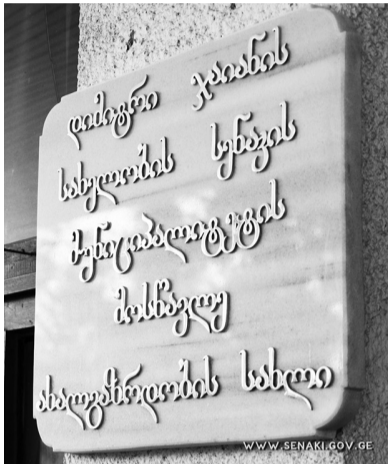 დიმიტრი ჯაიანის
სახელობის სენაკის
მუნიციპალიტეტის
მოსწავლე
ახალგაზრდობის სახლი
WWW.SENAKI.GOV.GE